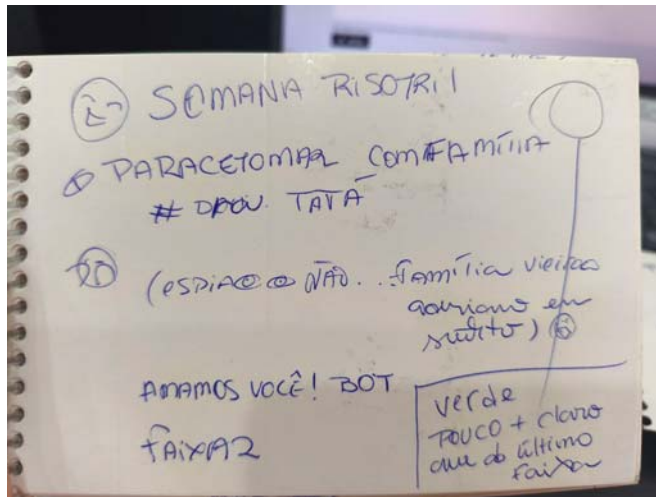 SEMANA RISOTRIL
PARACETOMAL COM FAMÍLIA
# DROU. TATÁ
NÃO.. família vieira
adriano en
AMAMOS VOCÊ! BOT
FAIXA2
verde
POUCO + claro
que do último
faixa